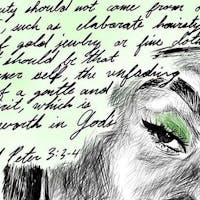 uty should not come from o
, such as elaborate hairsty
f gold jewelry or fine clot
should be that
nner self, the unfading
of a gentle and
irit, which is
worth in God's
1 Peter 3:3-4